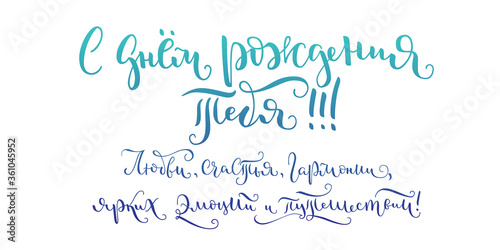 С днём рождения
Тебя !!!
Любви, счастья, гармонии,
ярких эмоций и путешествий!
Adobe Stock | #361045952